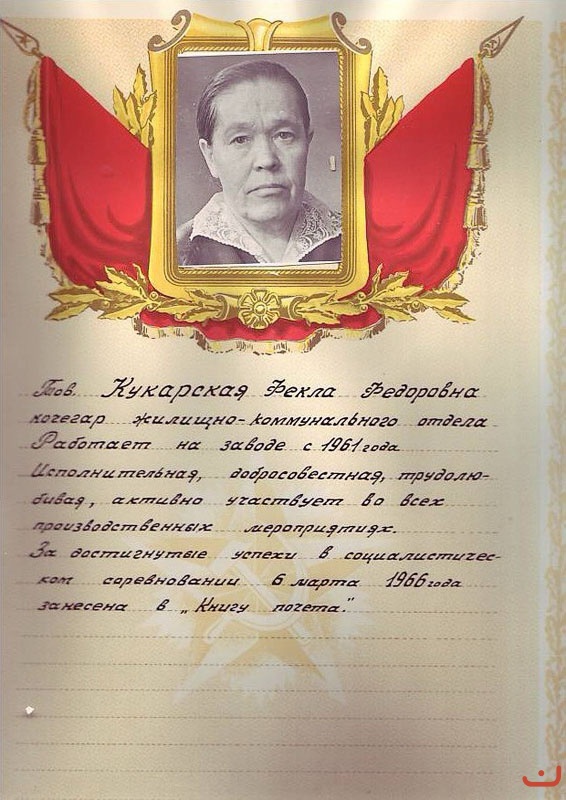 Тов. Кукарская Фекла Федоровна
кочегар жилищно-коммунального отдела
Работает на заводе с 1961 года
Исполнительная, добросовестная, трудолю-
бивая, активно участвует во всех
производственных мероприятиях.
За достигнутые успехи в социалистичес-
ком соревновании 6 марта 1966 года
занесена в „Книгу почета."